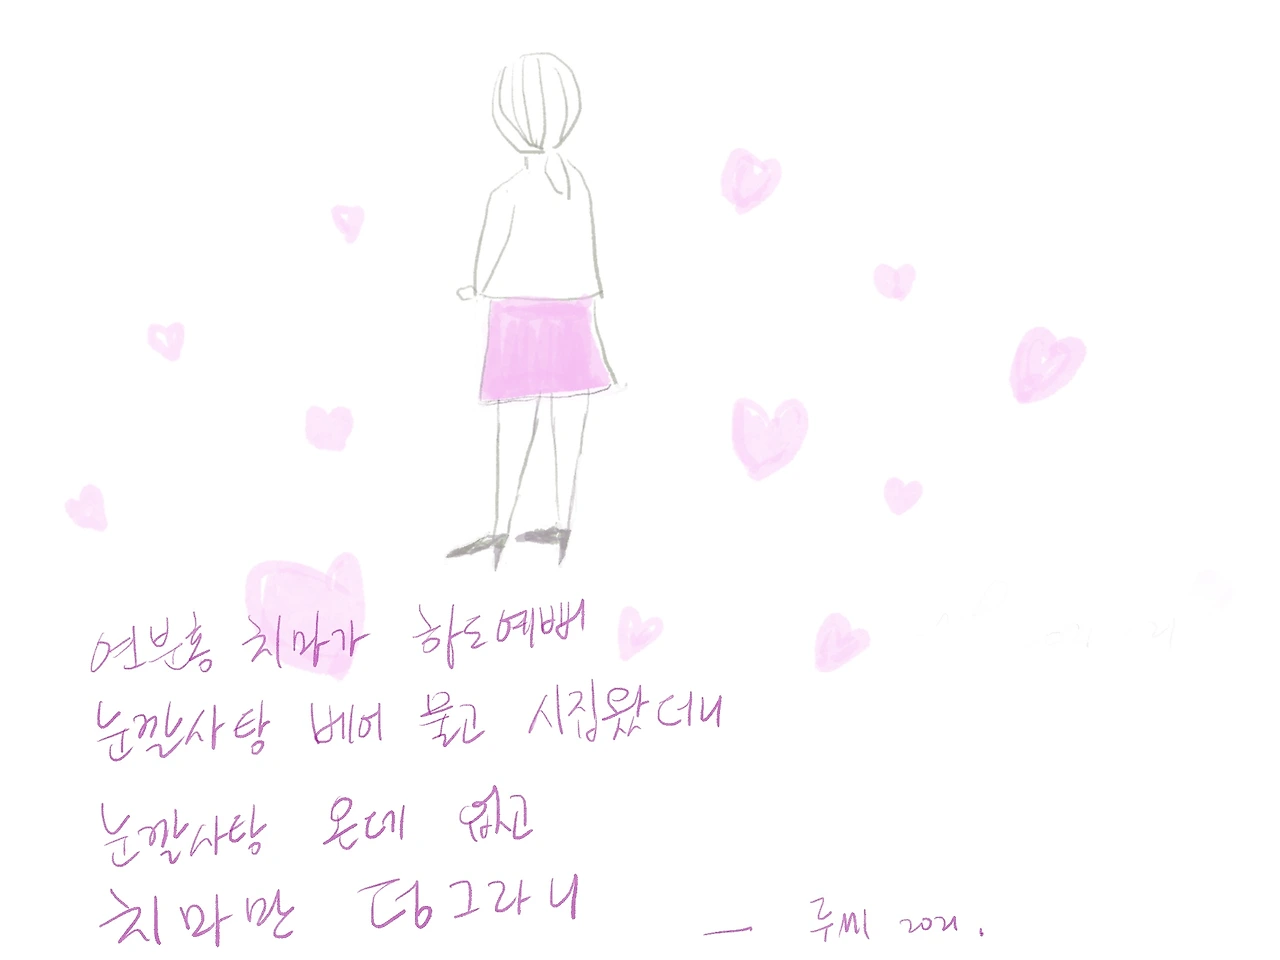 연분홍 치마가 하도예뻐
눈깔사탕 베어 물고 시집왔더니
눈깔사탕 온데 없고
치마만 덩그라니
— 루씨 2021.